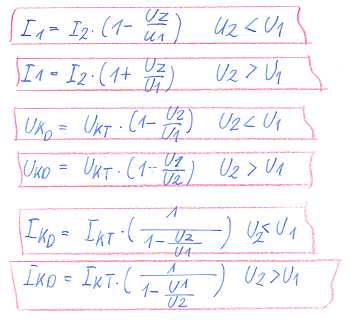 I1 = I2 · (1 - U2/U1) U2 < U1
I1 = I2 · (1 + U2/U1) U2 > U1
UKD = UKT · (1 - U2/U1) U2 < U1
UKD = UKT · (1 - U1/U2) U2 > U1
IKD = IKT · (1/(1 - U2/U1)) U2 < U1
IKD = IKT · (1/(1 - U1/U2)) U2 > U1